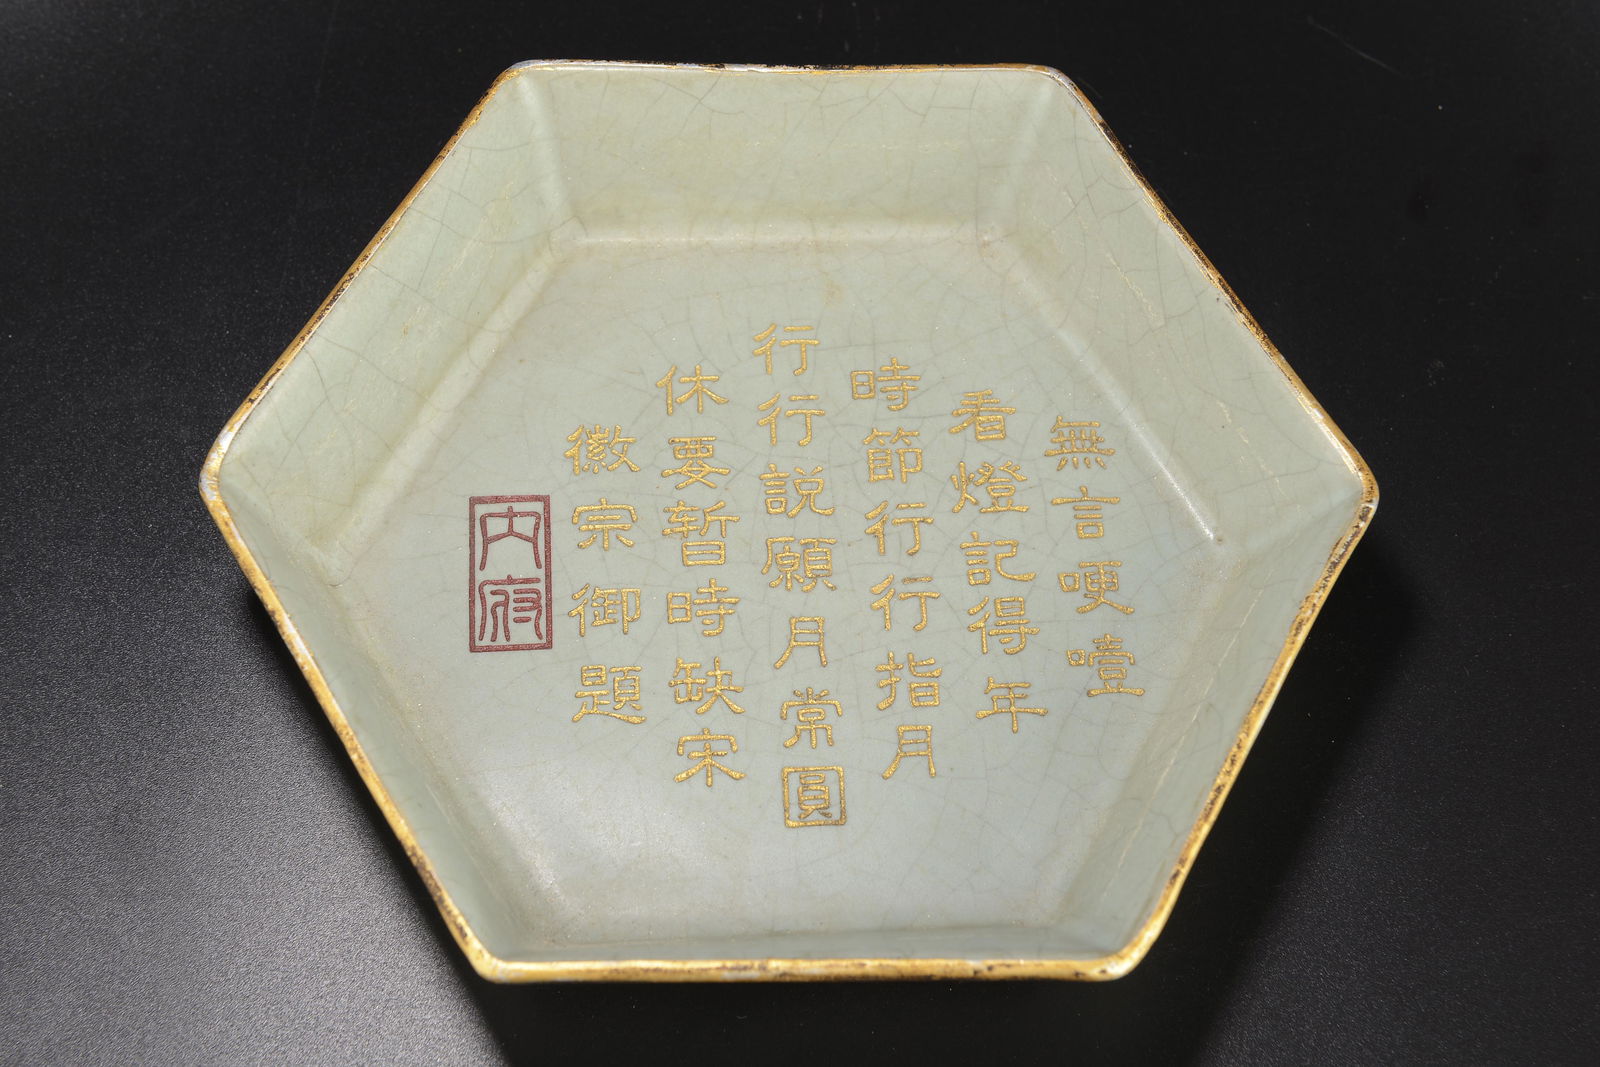 無言哽噎
看燈記得年
時節行行指月
行行説願月常圓
休要暫時缺宋
徽宗御題
内府